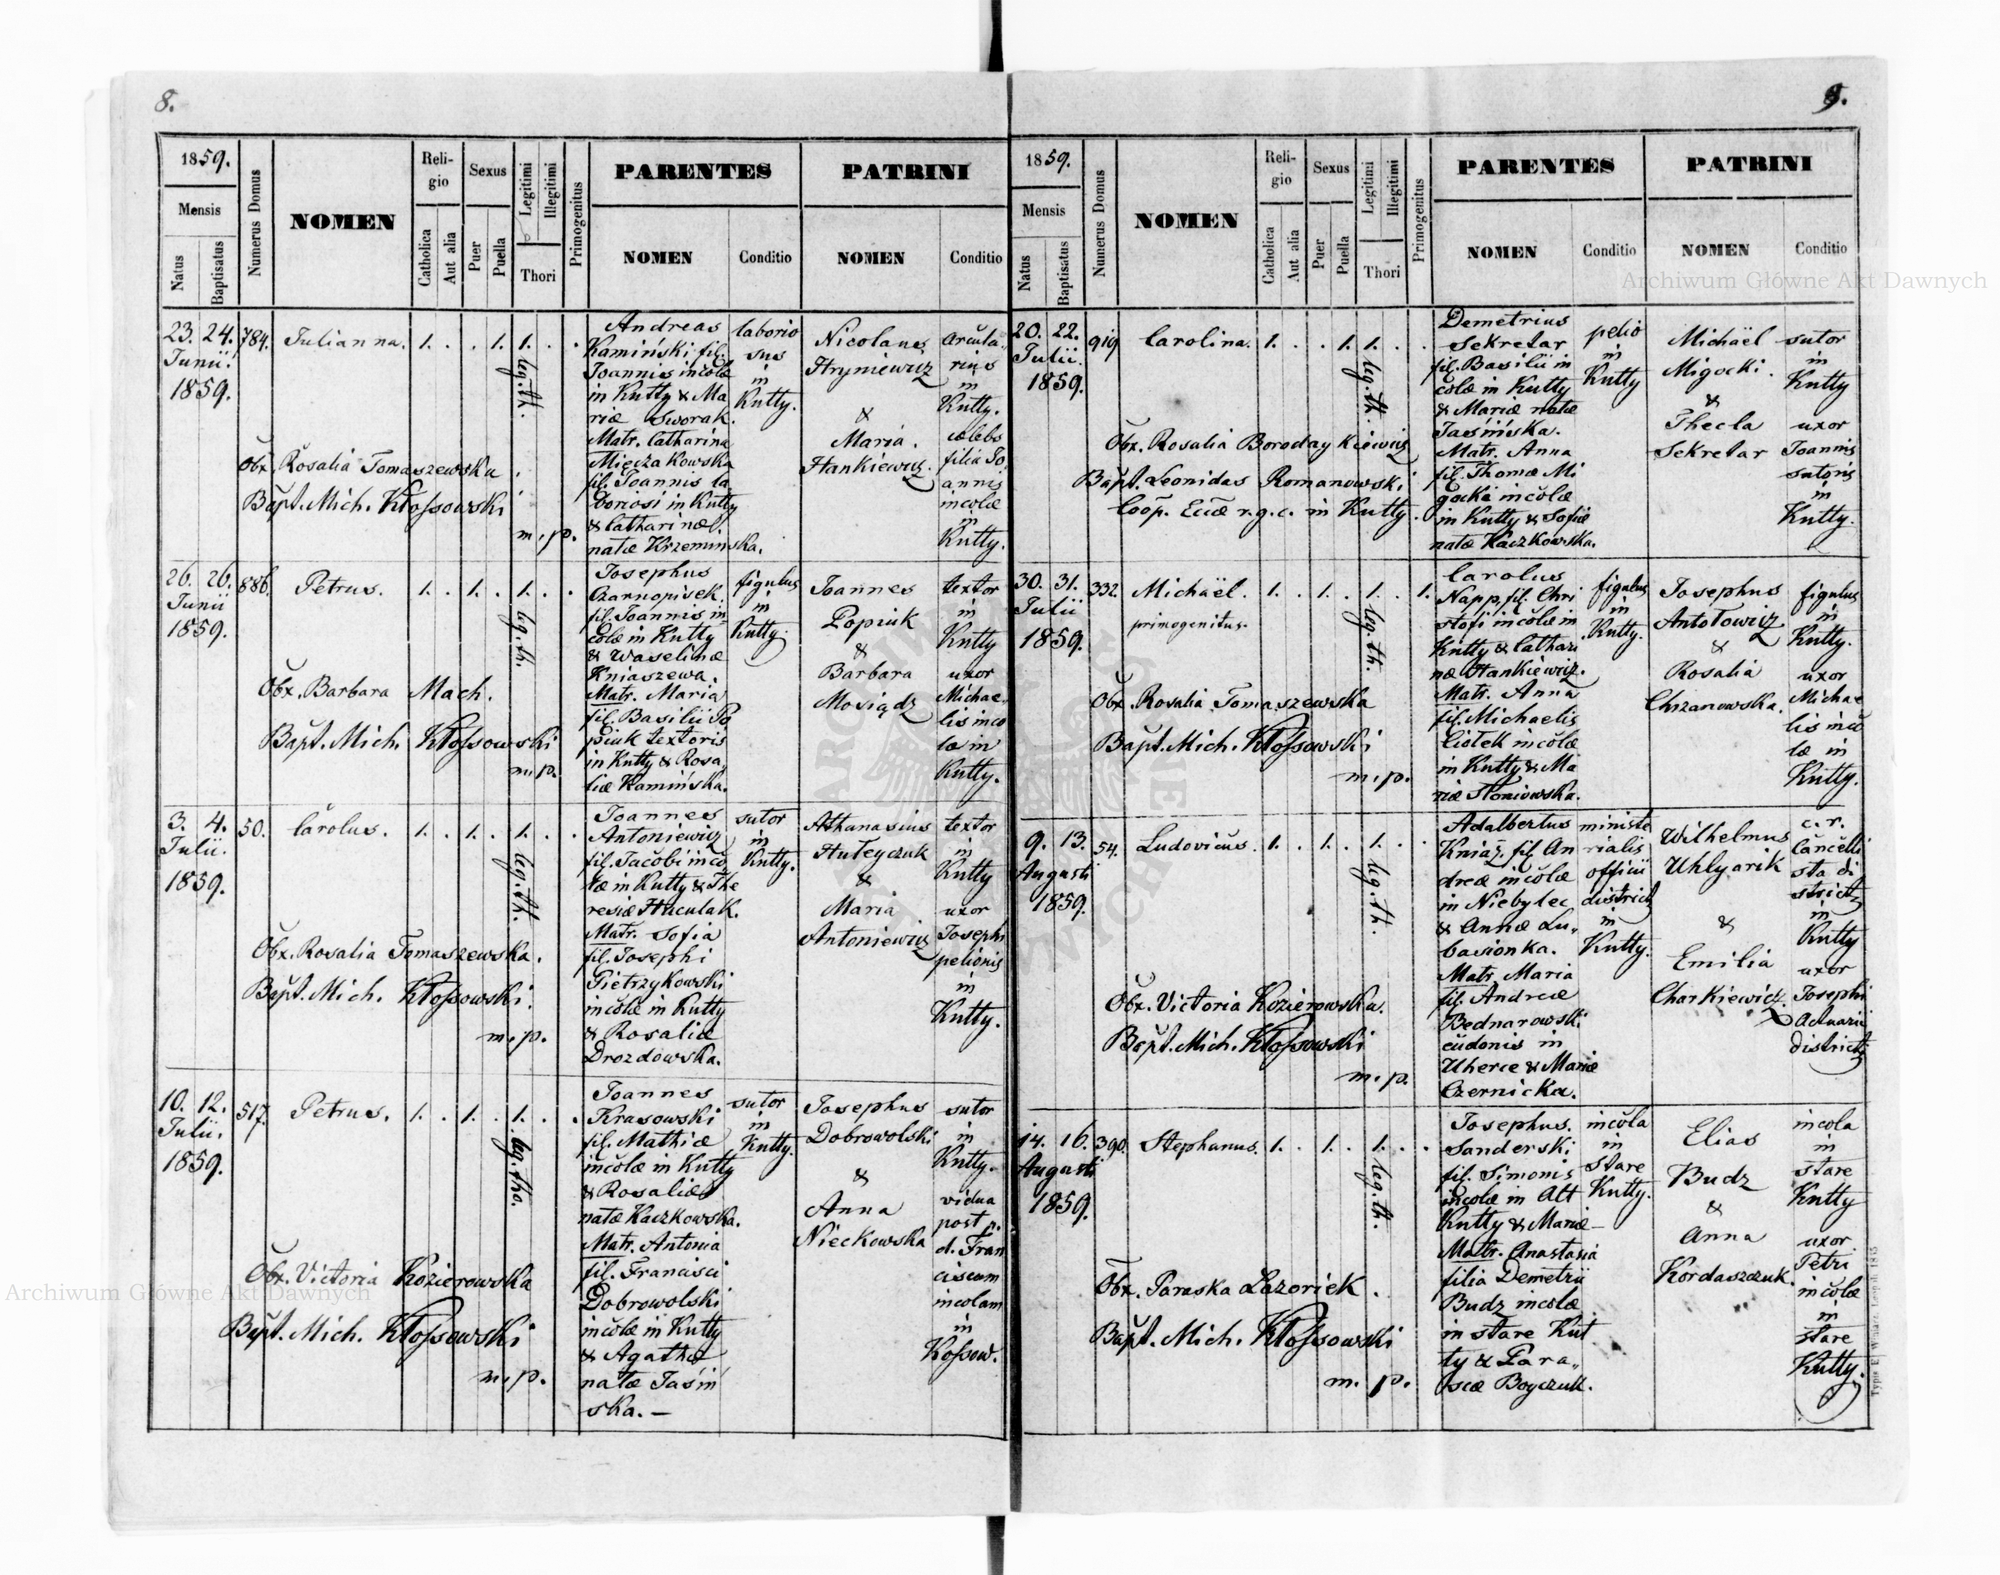 8.
1859.
Mensis
Natus
Baptisatus
Numerus Domus
NOMEN
Reli-
gio
Catholica
Aut alia
Sexus
Puer
Puella
Legitimi
Illegitimi
Thori
Primogenitus
PARENTES
NOMEN
Conditio
PATRINI
NOMEN
Conditio
23. 24.
Junii.
1859.
784.
Julianna.
1. . . 1. 1. .
leg. th.
Obx. Rosalia Tomaszewska
Bapt. Mich. Kłossowski
m. p.
Andreas
Kamiński fil.
Joannis incolæ
in Kutty & Ma
riæ Sworak.
Matr. Catharina
Mięczakowska
fil. Joannis la
boriosi in Kutty
& Catharinæ
natæ Krzeminska.
laborio
sus
in
Kutty.
Nicolaus
Hryniewicz
&
Maria
Hankiewicz.
arcula„
rius
in
Kutty.
cælebs
filia Jo
annis
incolæ
in
Kutty.
26. 26.
Junii
1859.
886.
Petrus.
1. . 1. . 1. . .
leg. th.
Obx. Barbara Mach.
Bapt. Mich. Kłossowski
m. p.
Josephus
Czarnopisek
fil. Joannis in
colæ in Kutty
& Waselinæ
Kniaszewa.
Matr. Maria
fil. Basilii Po
piuk textoris
in Kutty & Rosa„
liæ Kamińska.
figulus
in
Kutty.
Joannes
Popiuk
&
Barbara
Mosiądz
textor
in
Kutty
uxor
Michae„
lis inco
læ in
Kutty.
3. 4.
Julii.
1859.
50.
Carolus.
1. . 1. . 1. .
leg. th.
Obx. Rosalia Tomaszewska.
Bapt. Mich. Kłossowski.
m. p.
Joannes
Antoniewicz
fil. Jacobi inco
læ in Kutty & The
resiæ Huculak.
Matr. Sofia
fil. Josephi
Pietrzykowski
incolæ in Kutty
& Rosaliæ
Drozdowska.
sutor
in
Kutty.
Athanasius
Hułeyczuk
&
Maria
Antoniewicz
textor
in
Kutty
uxor
Josephi
pelionis
in
Kutty.
10. 12.
Julii.
1859.
517.
Petrus.
1. . 1. . 1. . .
leg. tho.
Obx. Victoria Kozierowska
Bapt. Mich. Kłossowski
m. p.
Joannes
Krasowski
fil. Mathiæ
incolæ in Kutty
& Rosaliæ
natæ Kaczkowska.
Matr. Antonia
fil. Francisci
Dobrowolski
incolæ in Kutty
& Agathæ
natæ Jasiń
ska. —
sutor
in
Kutty.
Josephus
Dobrowolski
&
Anna
Nieckowska
sutor
in
Kutty.
vidua
post
d. Fran
ciscum
incolam
in
Kossow.
9.
1859.
Mensis
Natus
Baptisatus
Numerus Domus
NOMEN
Reli-
gio
Catholica
Aut alia
Sexus
Puer
Puella
Legitimi
Illegitimi
Thori
Primogenitus
PARENTES
NOMEN
Conditio
PATRINI
NOMEN
Conditio
20. 22.
Julii.
1859.
919
Carolina.
1. . . 1. 1. . .
leg. th.
Obx. Rosalia Borodaykiewicz
Bapt. Leonidas Romanowski
Coop. Eccæ r. g. c. in Kutty.
Demetrius
Sekretar
fil. Basilii in
colæ in Kutty
& Mariæ natæ
Jasińska.
Matr. Anna
fil. Thomæ Mi
gocki incolæ
in Kutty & Sofiæ
natæ Kaczkowska.
pelio
in
Kutty
Michaël
Migocki.
&
Thecla
Sekretar
sutor
in
Kutty
uxor
Joannis
sutoris
in
Kutty.
30. 31.
Julii
1859.
332.
Michaël.
primogenitus.
1. . 1. . 1. . 1.
leg. th.
Obx. Rosalia Tomaszewska
Bapt. Mich. Kłossowski
m. p.
Carolus
Napp, fil. Chri
stofi incolæ in
Kutty & Cathari
næ Hankiewicz.
Matr. Anna
fil. Michaelis
Ciołek incolæ
in Kutty & Ma
riæ Słoniowska.
figulus
in
Kutty.
Josephus
Antołowicz
&
Rosalia
Chrzanowska.
figulus
in
Kutty.
uxor
Michae
lis inco
læ in
Kutty.
9. 13.
Augusti
1859.
54.
Ludovicus.
1. . 1. . 1. . .
leg. th.
Obx. Victoria Kozierowska.
Bapt. Mich. Kłossowski
m. p.
Adalbertus
Kniaź, fil. An
dreæ incolæ
in Niebylec
& Annæ Lu„
basionka.
Matr. Maria
fil. Andreæ
Bednarowski
cudonis in
Uherce & Mariæ
Czernicka.
ministe
rialis
officii
districti
in
Kutty.
Wilhelmus
Uhlyarik
&
Emilia
Charkiewicz.
c. r.
Cancelli
sta di
strictus
in
Kutty
uxor
Josephi
Actuarii
districti
14. 16.
Augusti
1859.
390.
Stephanus.
1. . 1. . 1. . .
leg. th.
Obx. Paraska Lazoriek.
Bapt. Mich. Kłossowski
m. p.
Josephus
Sanderski
fil. Simonis
incolæ in Alt
Kutty & Mariæ —
Matr. Anastasia
filia Demetrii
Budz incolæ
in stare Kut
ty & Para„
scæ Boyczuk.
incola
in
stare
Kutty.
Elias
Budz
&
Anna
Kordaszczuk.
incola
in
stare
Kutty
uxor
Petri
incolæ
in
stare
Kutty.
Archiwum Główne Akt Dawnych
Archiwum Główne Akt Dawnych